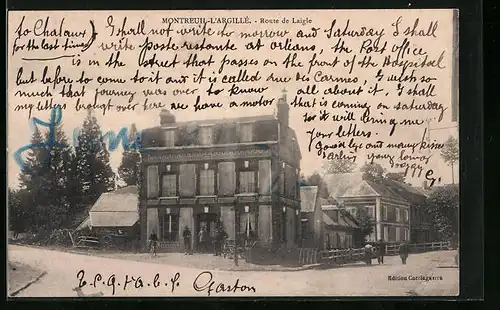 MONTREUIL-L'ARGILLÉ. - Route de Laigle
to Chalaux I shall not write to morrow and Saturday I shall
(for the last time) write poste restante at orlians, the Post office
is in the street that passes on the front of the Hospital
but before to come to it and it is called rue des Carmes, I wish so
much that journey was over to know all about it. I shall
my letters brought over here we have a motor that is coming on saturday
for it will bring me
your letters.
Good bye
darling your loving
Gogay
Edition
T.P.Q.T.A.B.L. Gaston